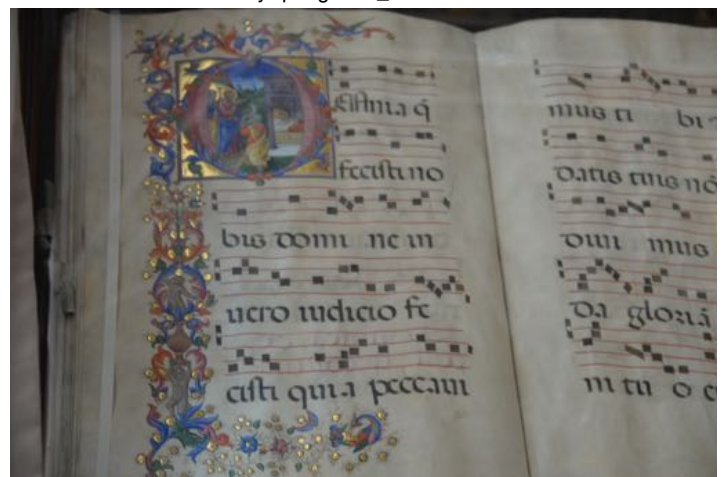 fecisti no
bis domi ne in
uero iudicio fe
cisti quia peccaui
mus ti bi
datis tuis nō
diui mus
da gloriā
ni tu o